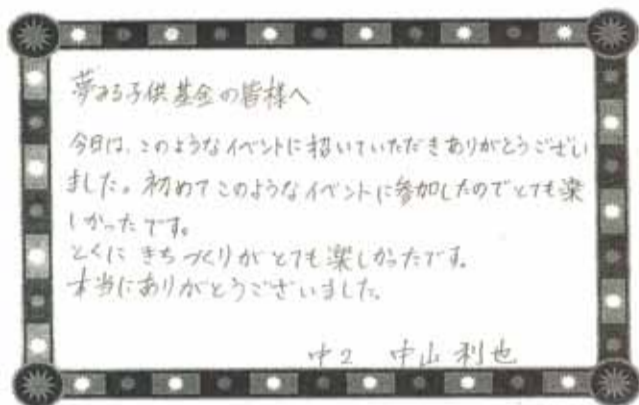 夢みる子供基金の皆様へ
今日は、このようなイベントに招いていただきありがとうござい
ました。初めてこのようなイベントに参加したのでとても楽
しかったです。
とくに きちづくりがとても楽しかったです。
本当にありがとうございました。
中2 中山 利也